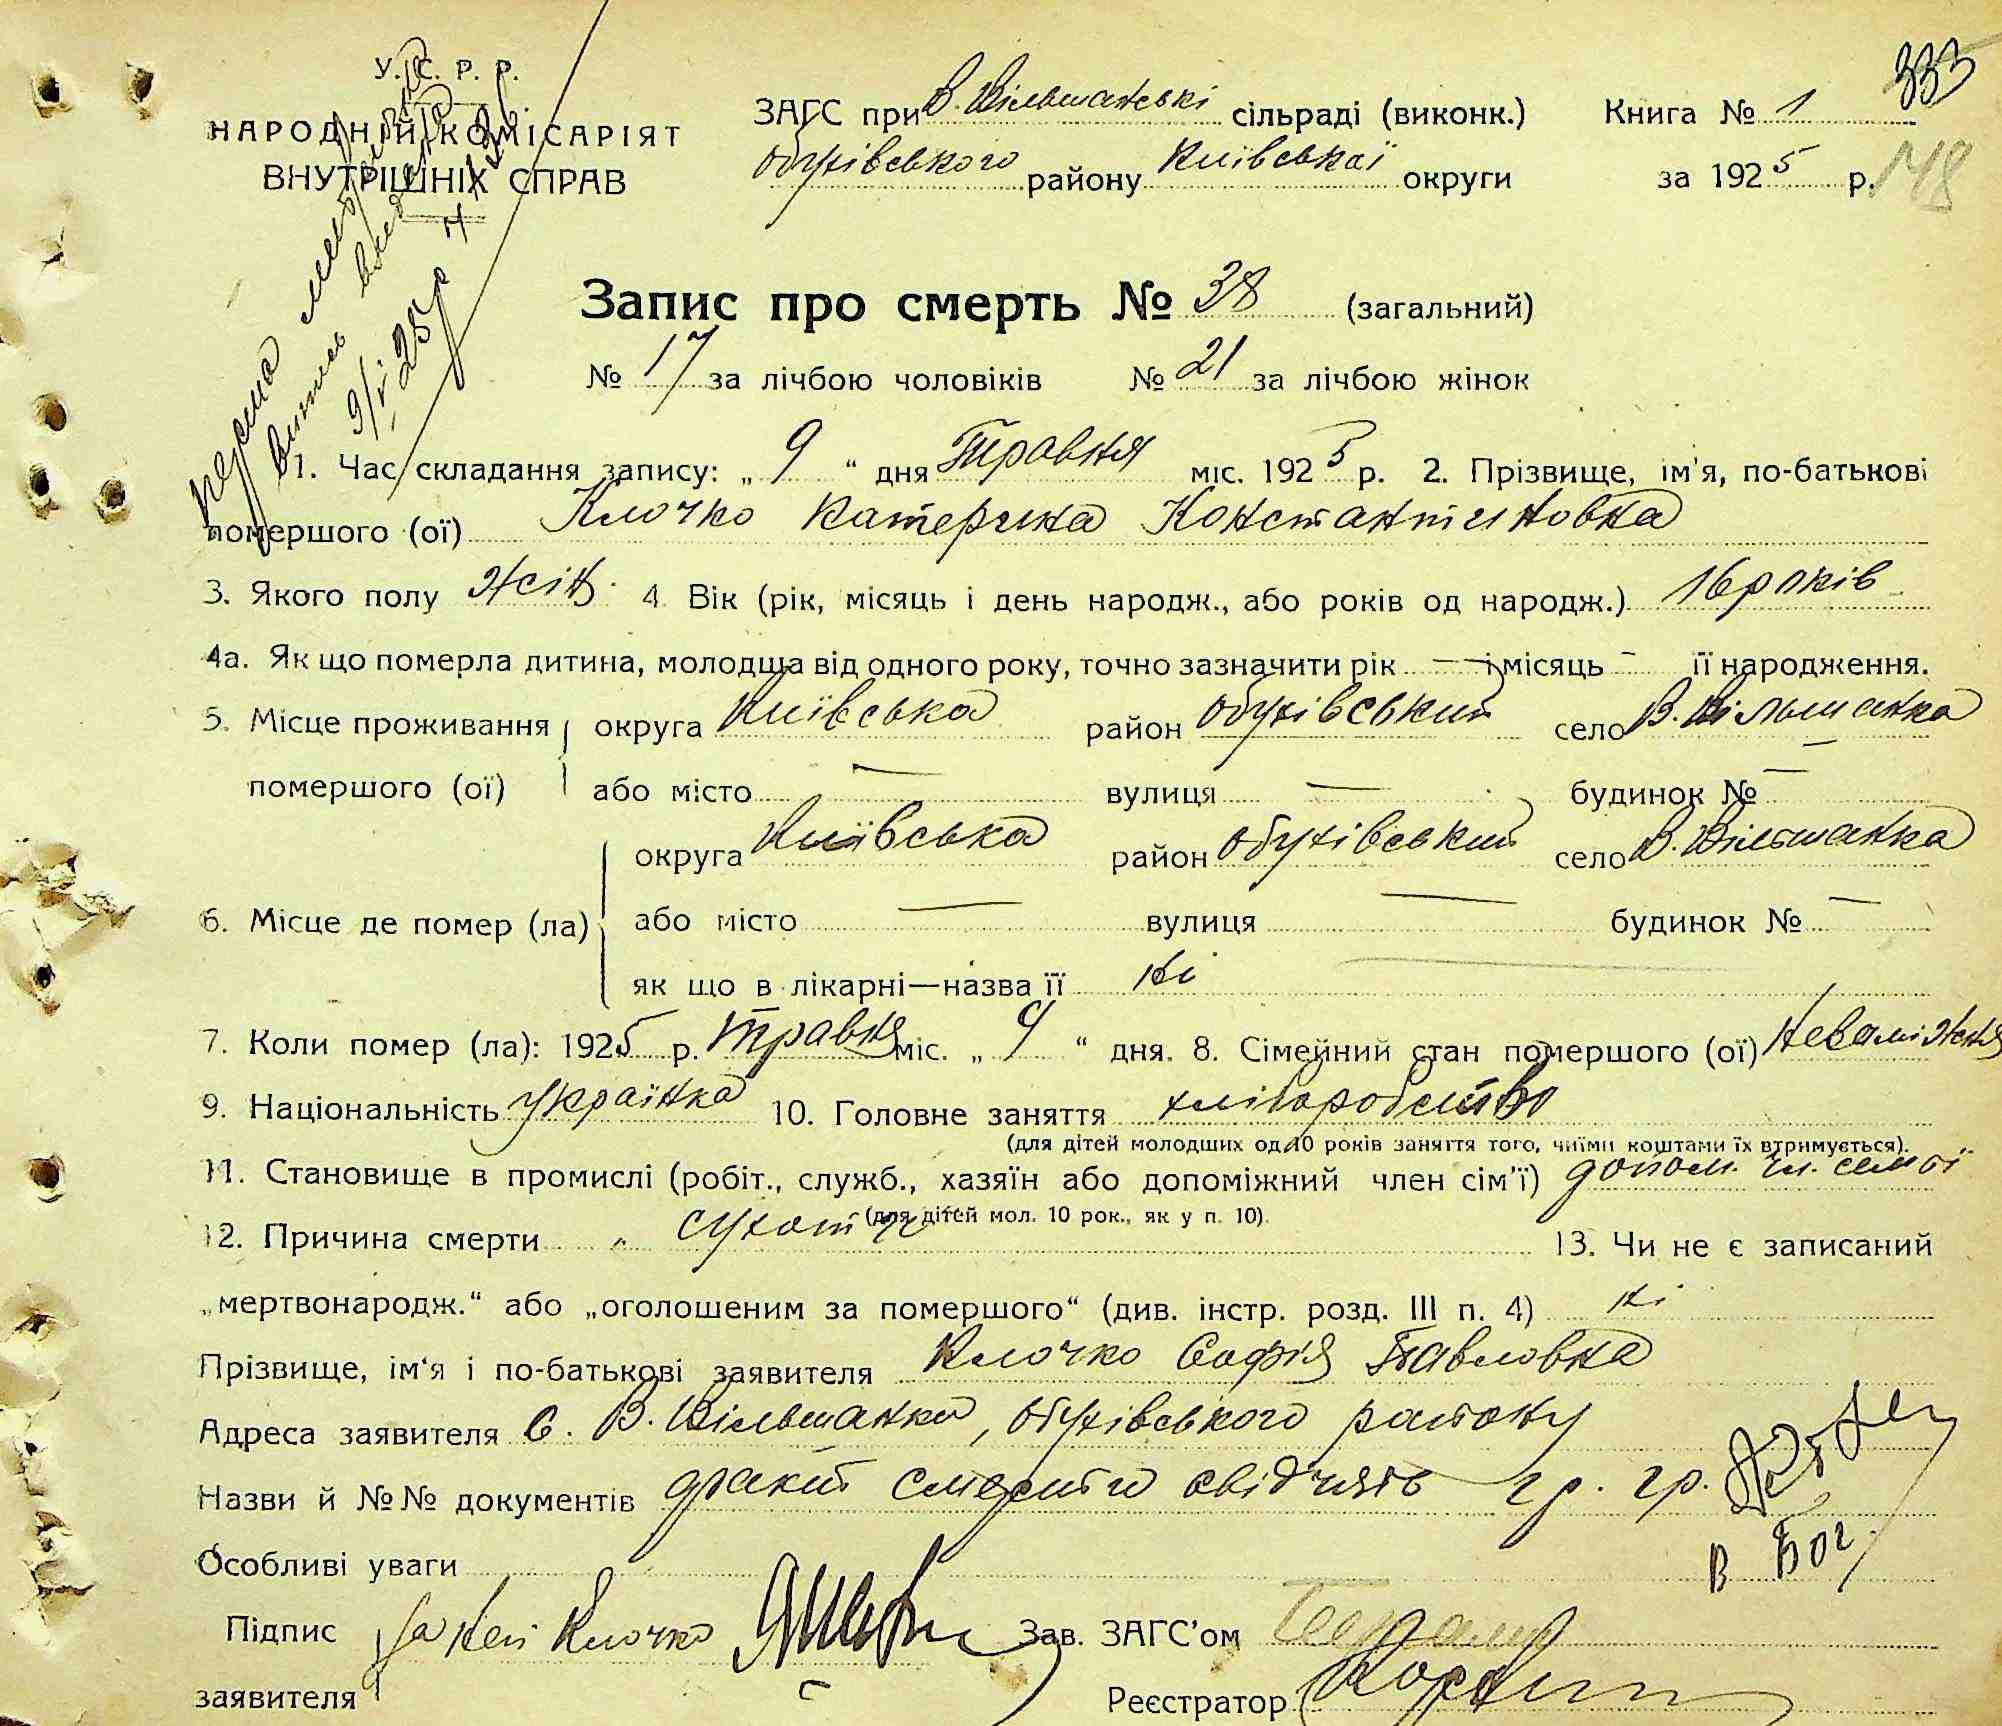 У. С. Р. Р.
НАРОДНІЙ КОМІСАРІЯТ
ВНУТРІШНІХ СПРАВ
ЗАГС при В. Вільшанські сільраді (виконк.)
Обухівського району Київської округи
Книга № 1
за 1925 р.
333
148
Запис про смерть № 38 (загальний)
№ 17 за лічбою чоловіків № 21 за лічбою жінок
1. Час складання запису: „ 9 “ дня Травня міс. 1925 р. 2. Прізвище, ім'я, по-батькові
помершого (ої) Клочко Катерина Константиновна
3. Якого полу жін. 4. Вік (рік, місяць і день народж., або років од народж.) 16 років
4а. Як що померла дитина, молодща від одного року, точно зазначити рік — і місяць - її народження.
5. Місце проживання округа Київська район Обухівський село В. Вільшанка
помершого (ої) або місто — вулиця — будинок № —
округа Київська район Обухівський село В. Вільшанка
6. Місце де помер (ла) або місто — вулиця — будинок № —
як що в лікарні—назва її ні
7. Коли помер (ла): 1925 р. травня міс. „ 9 “ дня. 8. Сімейний стан помершого (ої) незаміжня
9. Національність українка 10. Головне заняття хліборобство
(для дітей молодших од 10 років заняття того, чиїми коштами їх втримується).
11. Становище в промислі (робіт., служб., хазяїн або допоміжний член сім'ї) допом. чл. семьї
(для дітей мол. 10 рок., як у п. 10).
12. Причина смерти сухоти 13. Чи не є записаний
„мертвонародж.“ або „оголошеним за помершого“ (див. інстр. розд. III п. 4) ні
Прізвище, ім'я і по-батькові заявителя Клочко Софія Павловна
Адреса заявителя с. В. Вільшанка, Обухівського району
Назви й №№ документів факт смерти свідчять гр. гр.
Особливі уваги
Підпис за неї Клочко Зав. ЗАГС'ом
заявителя Реєстратор